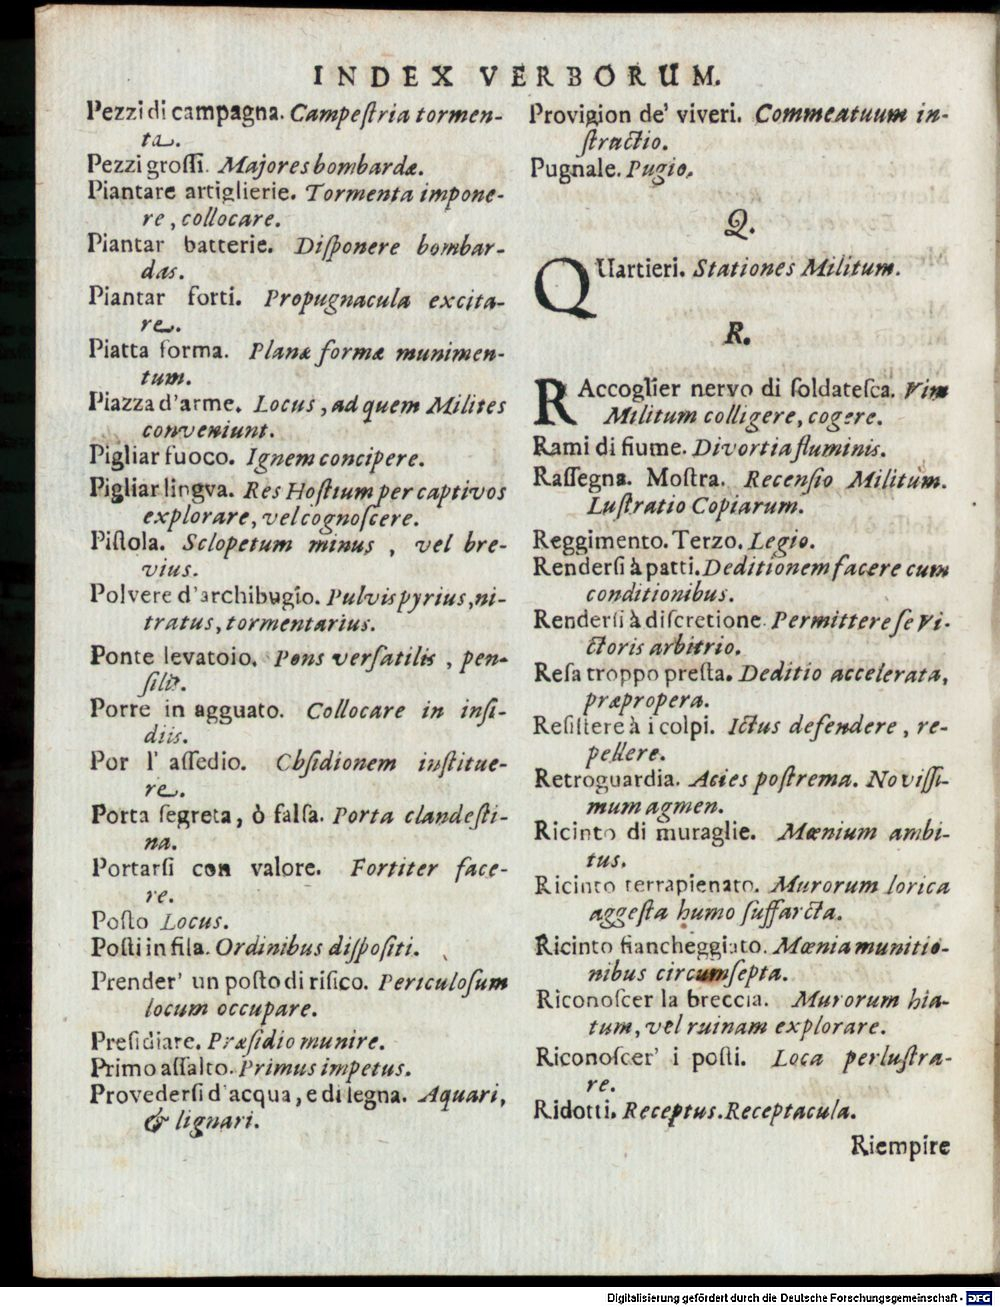 INDEX VERBORUM.
Pezzi di campagna. Campeſtria tormen-
ta.
Pezzi groſſi. Majores bombardæ.
Piantare artiglierie. Tormenta impone-
re, collocare.
Piantar batterie. Diſponere bombar-
das.
Piantar forti. Propugnacula excita-
re.
Piatta forma. Planæ formæ munimen-
tum.
Piazza d'arme. Locus, ad quem Milites
conveniunt.
Pigliar fuoco. Ignem concipere.
Pigliar lingva. Res Hoſtium per captivos
explorare, vel cognoſcere.
Piſtola. Sclopetum minus, vel bre-
vius.
Polvere d'archibugio. Pulvis pyrius, ni-
tratus, tormentarius.
Ponte levatoio. Pons verſatilis, pen-
ſilis.
Porre in agguato. Collocare in inſi-
diis.
Por l' aſſedio. Obſidionem inſtitue-
re.
Porta ſegreta, ò falſa. Porta clandeſti-
na.
Portarſi con valore. Fortiter face-
re.
Poſto Locus.
Poſti in fila. Ordinibus diſpoſiti.
Prender' un poſto di riſico. Periculoſum
locum occupare.
Preſidiare. Præſidio munire.
Primo aſſalto. Primus impetus.
Provederſi d'acqua, e di legna. Aquari,
& lignari.
Provigion de' viveri. Commeatuum in-
ſtructio.
Pugnale. Pugio.
Q.
QUartieri. Stationes Militum.
R.
RAccoglier nervo di ſoldateſca. Vim
Militum colligere, cogere.
Rami di fiume. Divortia fluminis.
Raſſegna. Moſtra. Recenſio Militum.
Luſtratio Copiarum.
Reggimento. Terzo. Legio.
Renderſi à patti. Deditionem facere cum
conditionibus.
Renderſi à diſcretione. Permittere ſe Vi-
ctoris arbitrio.
Reſa troppo preſta. Deditio accelerata,
præpropera.
Reſiſtere à i colpi. Ictus defendere, re-
pellere.
Retroguardia. Acies poſtrema. Noviſſi-
mum agmen.
Ricinto di muraglie. Mœnium ambi-
tus.
Ricinto terrapienato. Murorum lorica
aggeſta humo ſuffarcta.
Ricinto fiancheggiato. Mœnia munitio-
nibus circumſepta.
Riconoſcer la breccia. Murorum hia-
tum, vel ruinam explorare.
Riconoſcer' i poſti. Loca perluſtra-
re.
Ridotti. Receptus. Receptacula.
Riempire
Digitalisierung gefördert durch die Deutsche Forschungsgemeinschaft - DFG